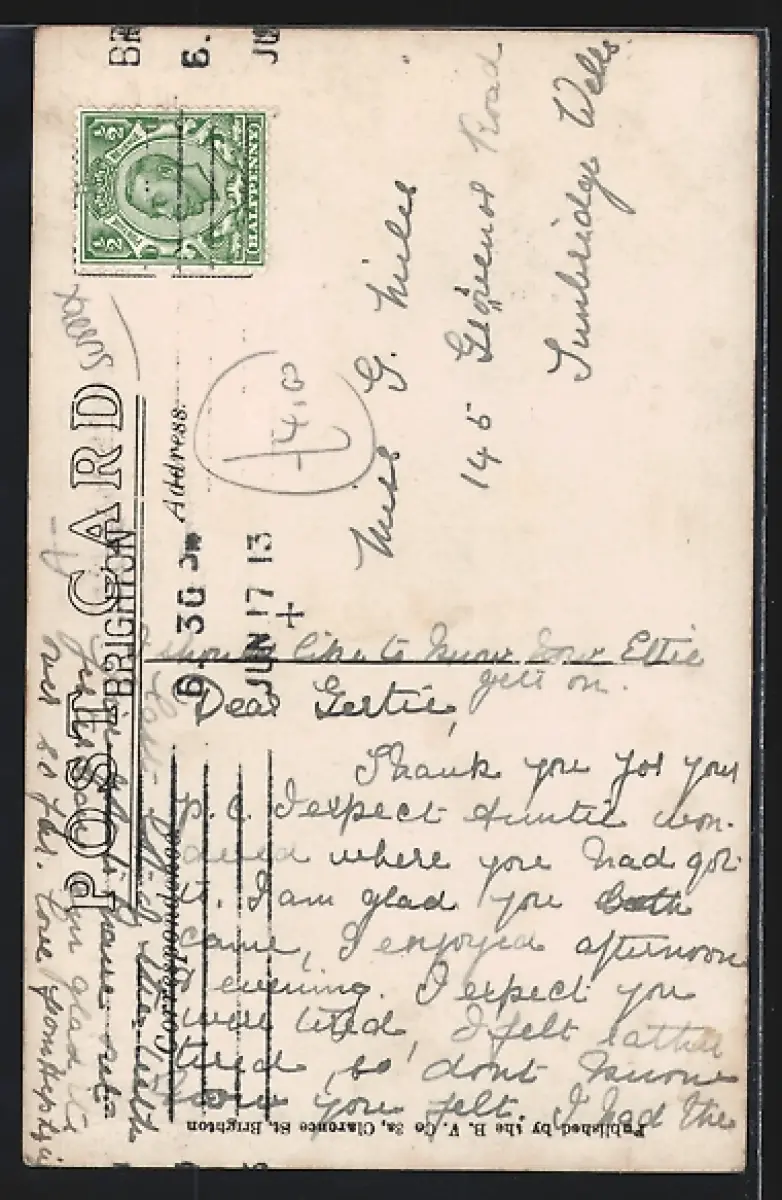 POST CARD
BRIGHTON
6.30 PM
JUN 17 13
HALFPENNY
½ ½
Address.
Correspondence
Sussex
4.00
Miss G. Miles
145 Grosvenor Road
Tunbridge Wells
I should like to know how Ettie
gets on.
Dear Gertie,
Thank you for your
p.c. I expect Auntie won-
dered where you had got
it. I am glad you both
came, I enjoyed afternoon
& evening. I expect you
were tired, I felt rather
tired, so dont know
how you felt. I had the
teeth
glad
over so far. Love from
Published by the B. V. Co 3a, Clarence St. Brighton